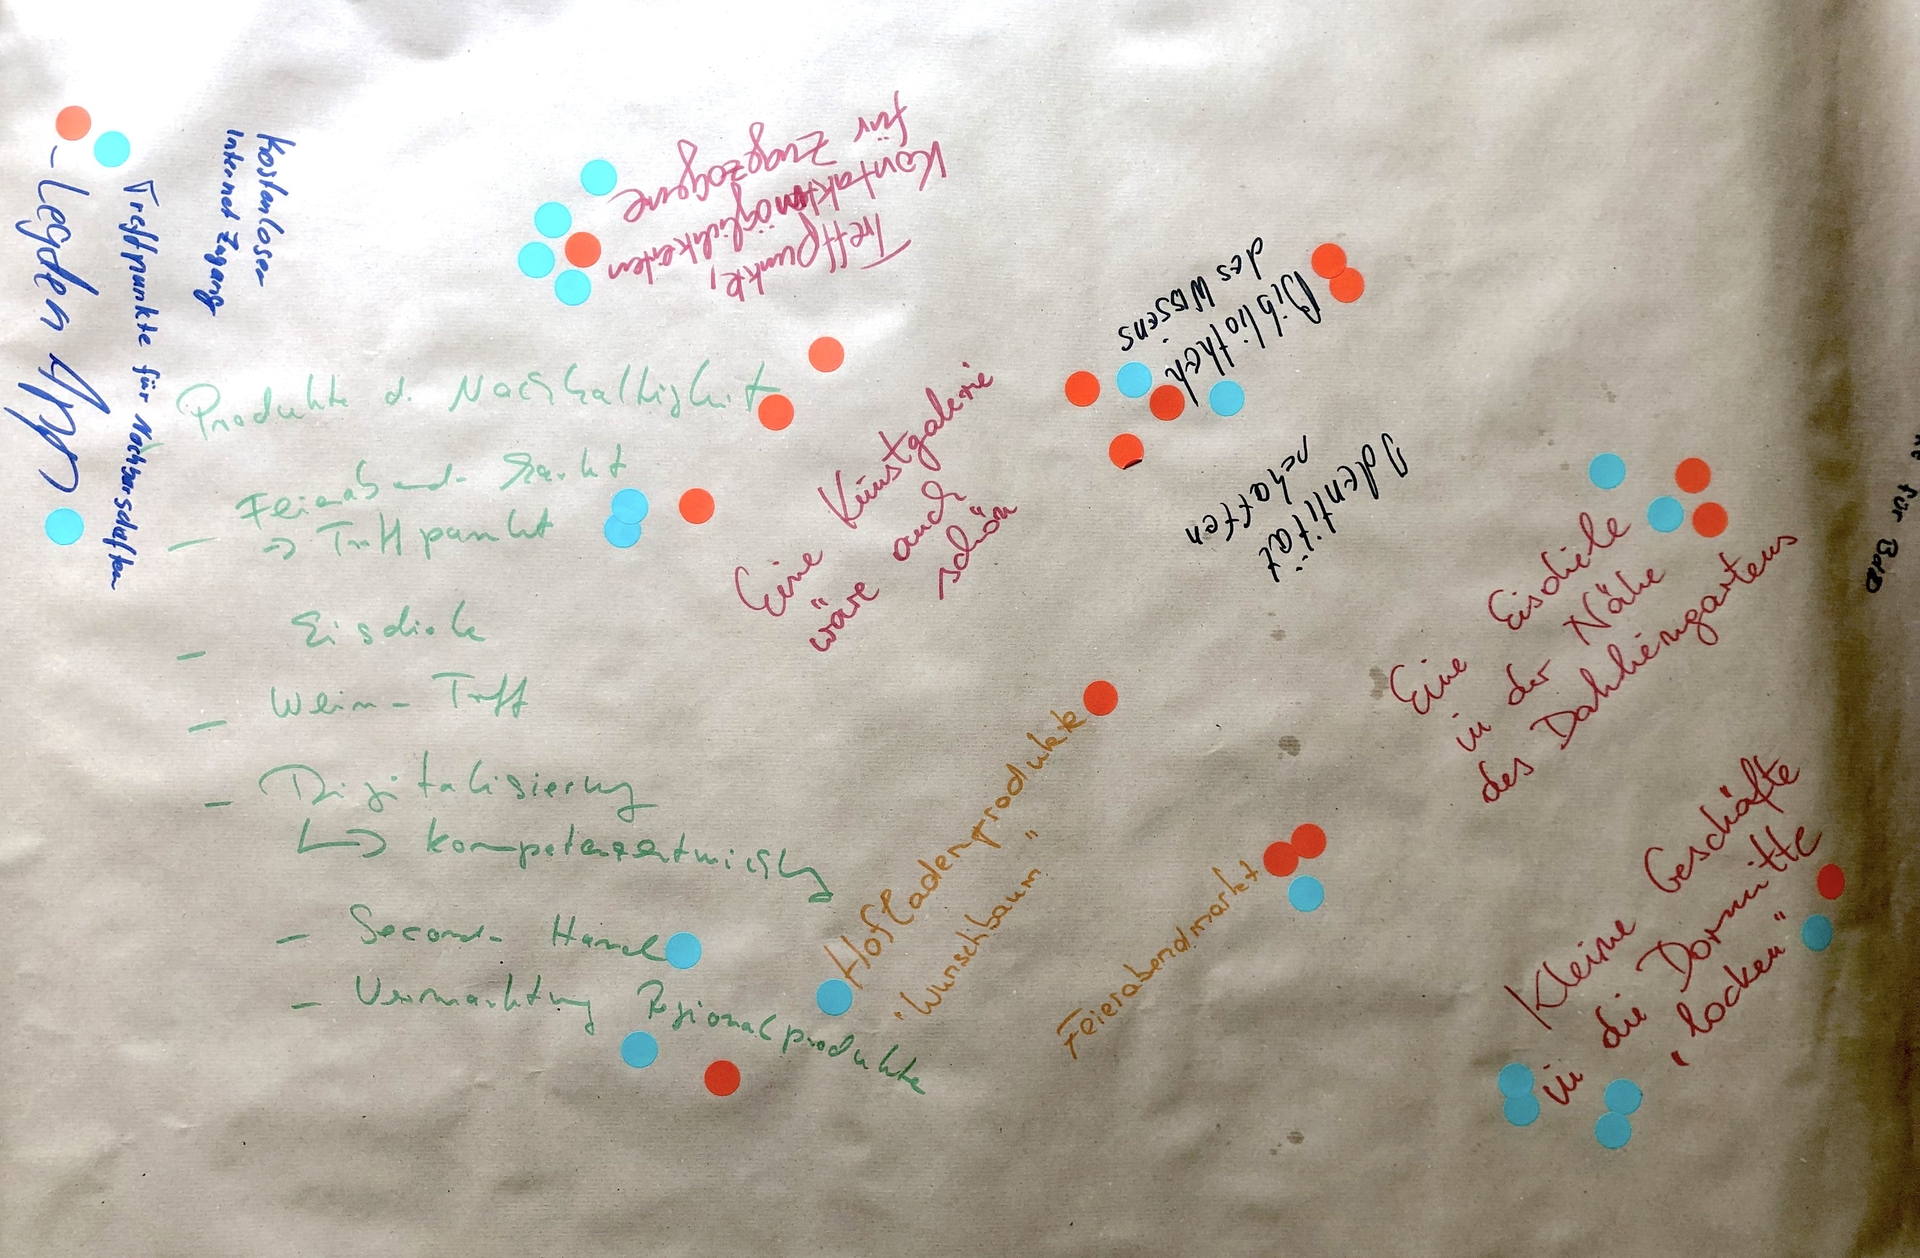 – Legden App
Treffpunkte für Nachbarschaften
Kostenloser
Internet Zugang
Produkte d. Nachhaltigkeit
– Feierabend-Markt
→ Treffpunkt
– Eisdiele
– Wein-Treff
– Digitalisierung
↳ Kompetenzentwicklg
– Second-Hand
– Vermarktung Regionalprodukte
Treffpunkte,
Kontaktmöglichkeiten
für Zugezogene
Eine Kunstgalerie
wäre auch
schön
Bibliothek
des Wissens
Identität
schaffen
Hofladenprodukte
"Wunschbaum"
Feierabendmarkt
Eine Eisdiele
in der Nähe
des Dahliengartens
Kleine Geschäfte
in die Dormitte
"locken"
für